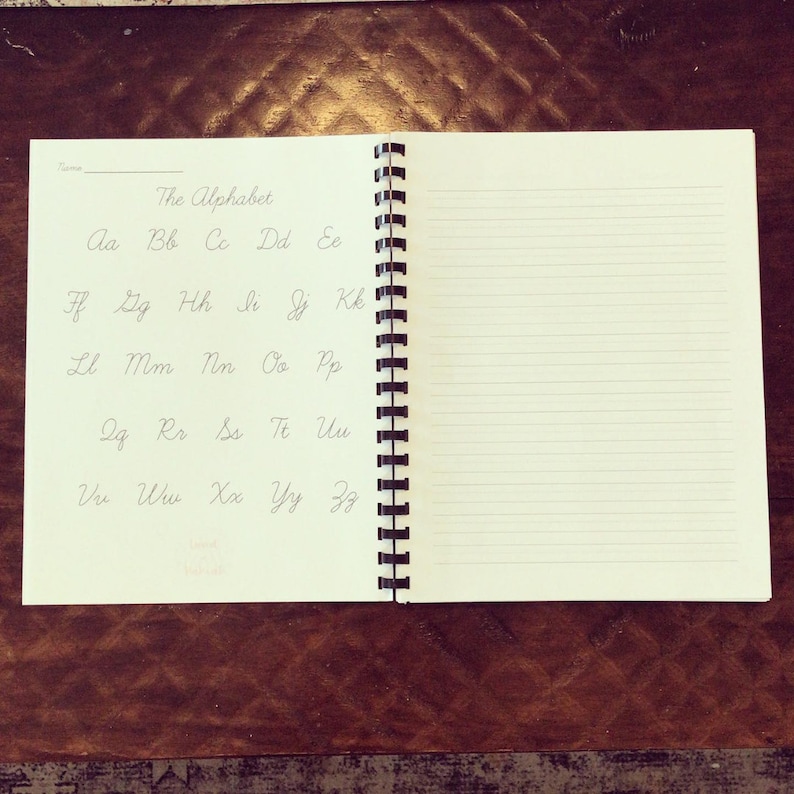 Name
The Alphabet
Aa Bb Cc Dd Ee
Ff Gg Hh Ii Jj Kk
Ll Mm Nn Oo Pp
Qq Rr Ss Tt Uu
Vv Ww Xx Yy Zz